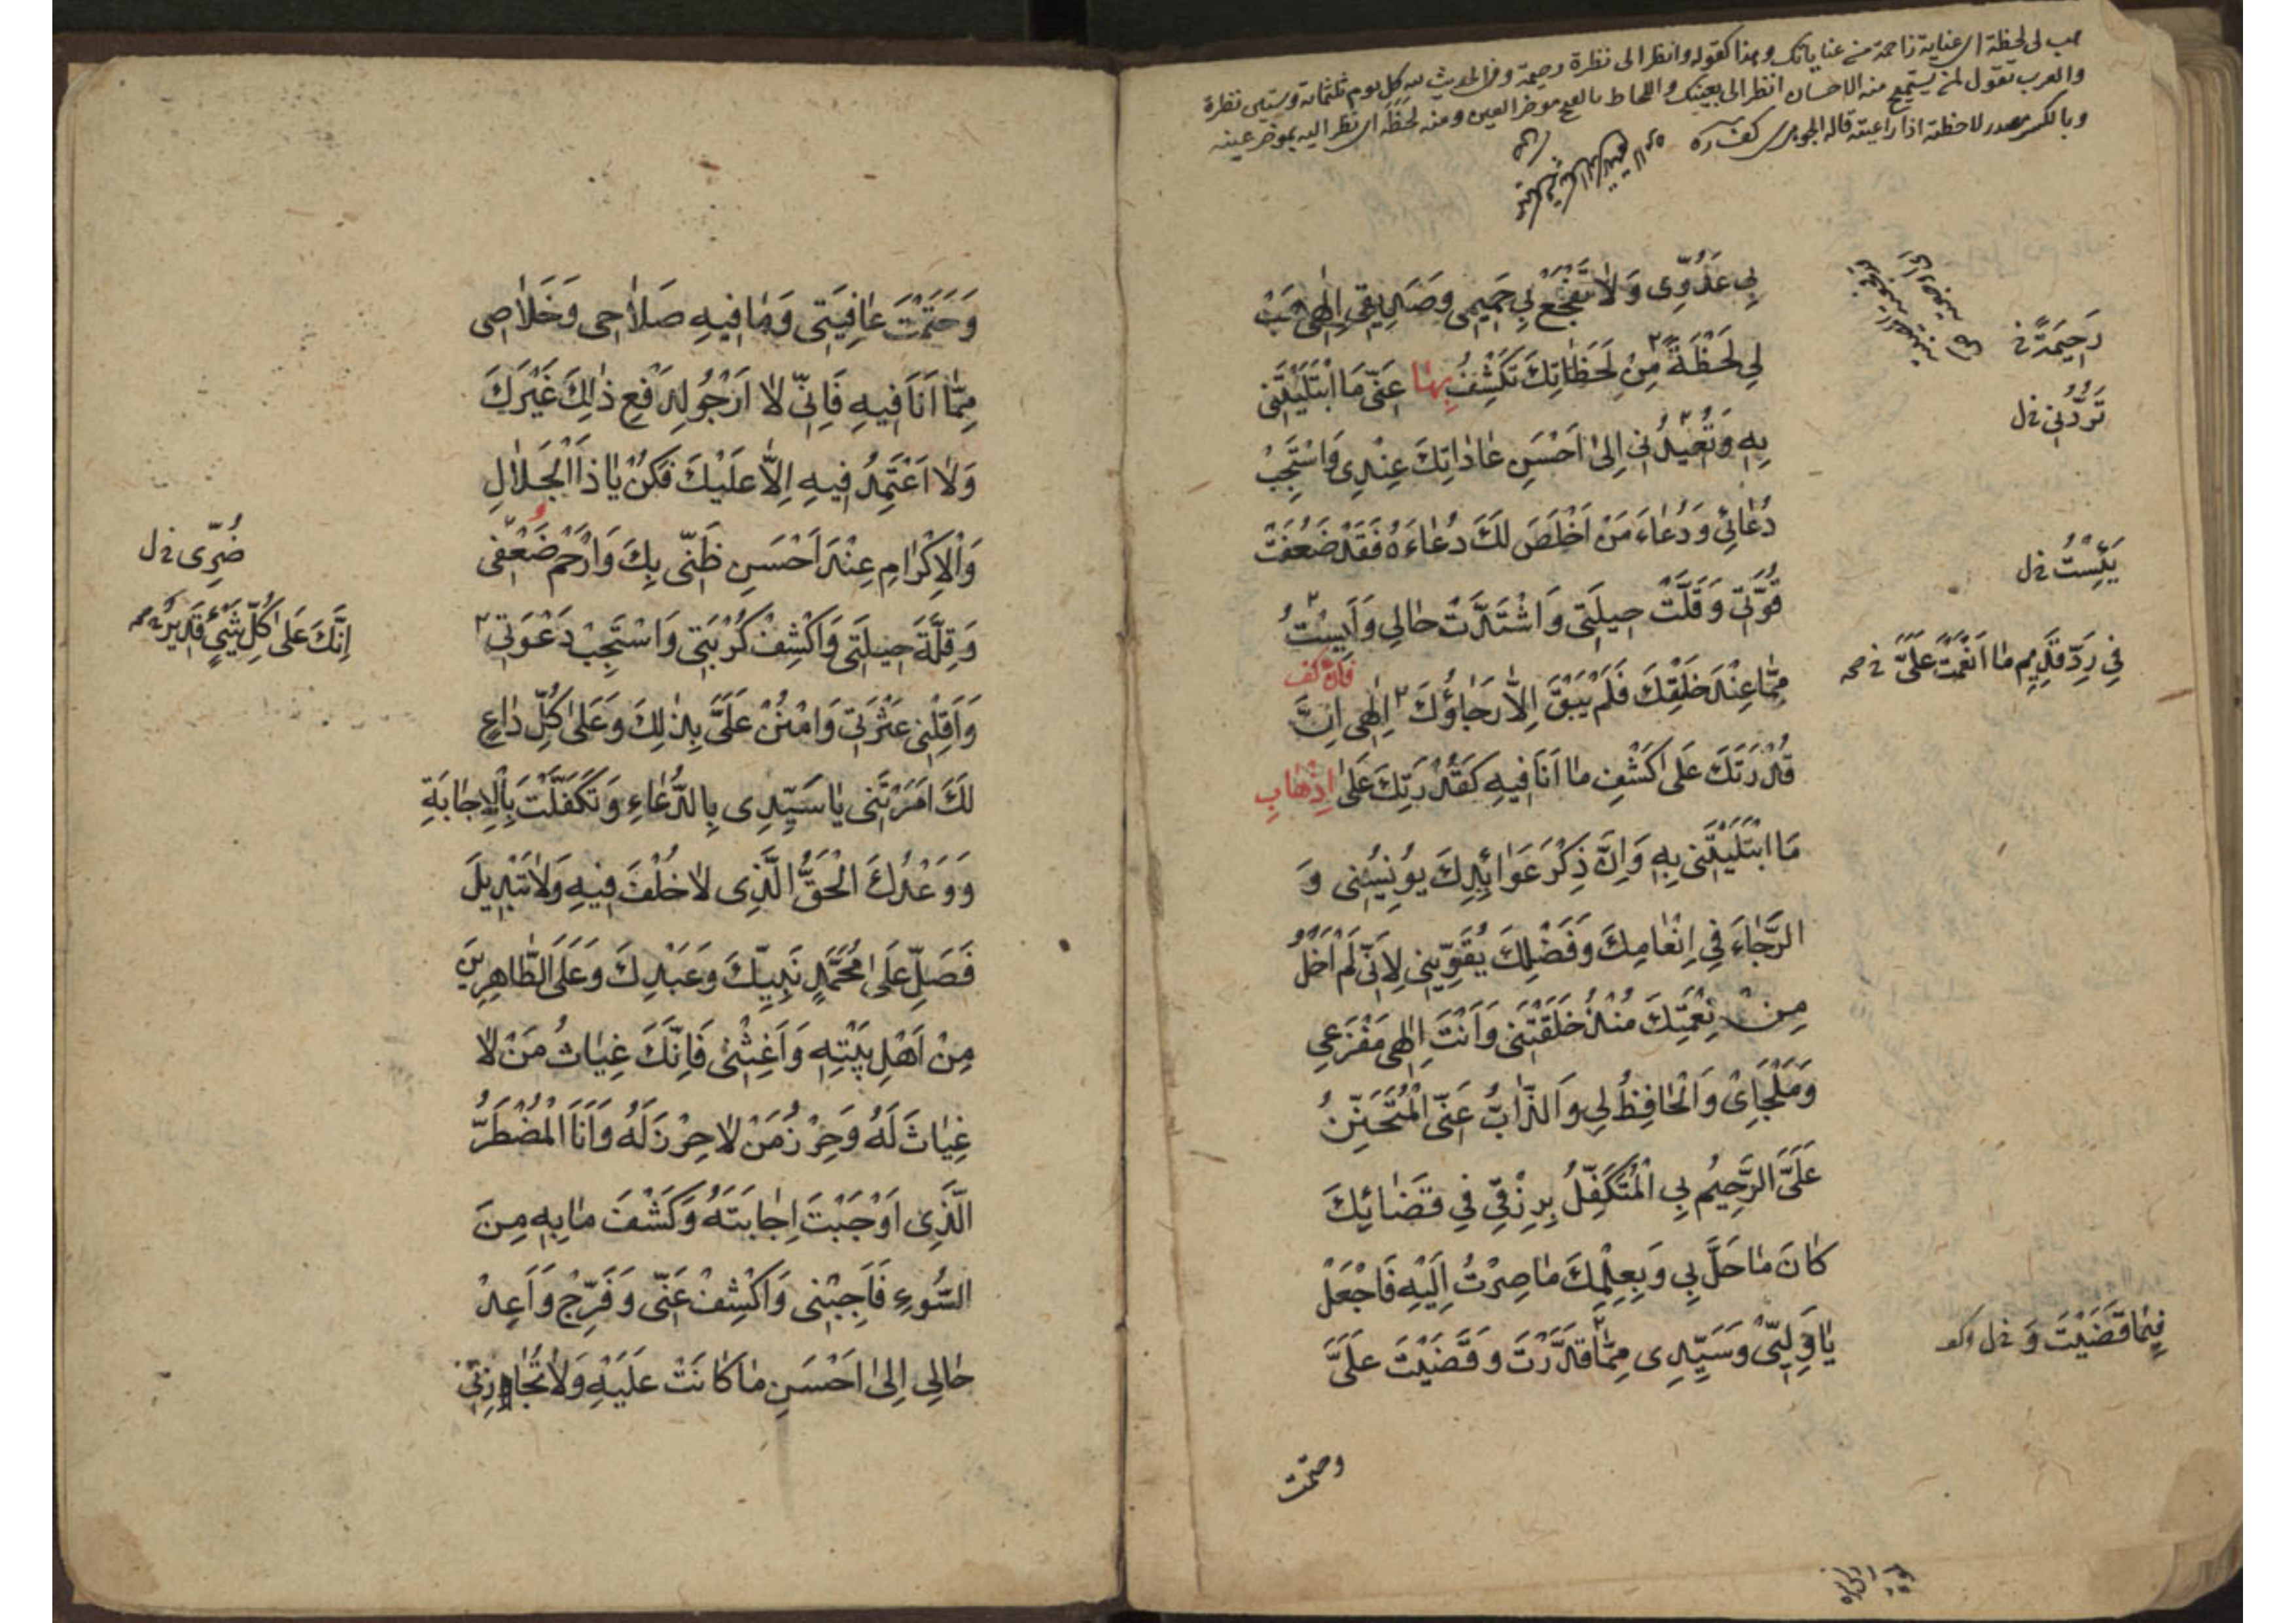 هب لى لحظة اى عناية زاحمة من عناياتك وهذا كقوله وانظر الى نظرة رحيمة وفى الحديث لله كل يوم ثلثمائة وستين نظرة
والعرب تقول لمن يستميح منه الاحسان انظر الى بعينك واللحاظ بالفتح موخر العين ومنه لحظه اى نظر اليه بموخر عينه
وبالكسر مصدر لاحظته اذا راعيته قاله الجوهرى
بِي عَدُوِّي وَلَا تُفْجِعْ بِي حَمِيمِي وَصَدِيقِي اِلٰهِي هَبْ
لِي لَحْظَةً مِنْ لَحَظَاتِكَ تَكْشِفُ بِهَا عَنِّي مَا ابْتَلَيْتَنِي
رَحِيمَةً خ
بِهِ وَتُعِيدُنِي اِلٰى اَحْسَنِ عَادَاتِكَ عِنْدِي وَاسْتَجِبْ
تَرُدُّنِي خ ل
دُعَائِي وَدُعَاءَ مَنْ اَخْلَصَ لَكَ دُعَاءَهُ فَقَدْ ضَعُفَتْ
قُوَّتِي وَقَلَّتْ حِيلَتِي وَاشْتَدَّتْ حَالِي وَاَيِسْتُ
يَئِسْتُ خ ل
مِمَّا عِنْدَ خَلْقِكَ فَلَمْ يَبْقَ اِلَّا رَجَاؤُكَ اِلٰهِي اِنَّ
فِي رَدِّ قَدِيمِ مَا اَنْعَمْتَ عَلَيَّ خ صح
قُدْرَتَكَ عَلٰى كَشْفِ مَا اَنَا فِيهِ كَقُدْرَتِكَ عَلٰى اِذْهَابِ
مَا ابْتَلَيْتَنِي بِهِ وَاِنَّ ذِكْرَ عَوَائِدِكَ يُونِسُنِي وَ
الرَّجَاءَ فِي اِنْعَامِكَ وَفَضْلِكَ يُقَوِّينِي لِاَنِّي لَمْ اَخْلُ
مِنْ نِعْمَتِكَ مُنْذُ خَلَقْتَنِي وَاَنْتَ اِلٰهِي مَفْزَعِي
وَمَلْجَاِيْ وَالْحَافِظُ لِي وَالذَّابُّ عَنِّي الْمُتَحَنِّنُ
عَلَيَّ الرَّحِيمُ بِي الْمُتَكَفِّلُ بِرِزْقِي فِي قَضَائِكَ
كَانَ مَا حَلَّ بِي وَبِعِلْمِكَ مَا صِرْتُ اِلَيْهِ فَاجْعَلْ
يَا وَلِيِّي وَسَيِّدِي مِمَّا قَدَّرْتَ وَقَضَيْتَ عَلَيَّ
فِيمَا قَضَيْتَ وَ خ ل
وحتمت
وَحَتَمْتَ عَافِيَتِي وَمَا فِيهِ صَلَاحِي وَخَلَاصِي
مِمَّا اَنَا فِيهِ فَاِنِّي لَا اَرْجُو لِدَفْعِ ذٰلِكَ غَيْرَكَ
وَلَا اَعْتَمِدُ فِيهِ اِلَّا عَلَيْكَ فَكُنْ يَا ذَا الْجَلَالِ
وَالْاِكْرَامِ عِنْدَ اَحْسَنِ ظَنِّي بِكَ وَارْحَمْ ضَعْفِي
ضُرِّي خ ل
وَقِلَّةَ حِيلَتِي وَاكْشِفْ كُرْبَتِي وَاسْتَجِبْ دَعْوَتِي
وَاَقِلْنِي عَثْرَتِي وَامْنُنْ عَلَيَّ بِذٰلِكَ وَعَلٰى كُلِّ دَاعٍ
اِنَّكَ عَلٰى كُلِّ شَيْءٍ قَدِيرٌ صح
لَكَ اَمَرْتَنِي يَا سَيِّدِي بِالدُّعَاءِ وَتَكَفَّلْتَ بِالْاِجَابَةِ
وَوَعْدُكَ الْحَقُّ الَّذِي لَا خُلْفَ فِيهِ وَلَا تَبْدِيلَ
فَصَلِّ عَلٰى مُحَمَّدٍ نَبِيِّكَ وَعَبْدِكَ وَعَلَى الطَّاهِرِينَ
مِنْ اَهْلِ بَيْتِهِ وَاَغِثْنِي فَاِنَّكَ غِيَاثُ مَنْ لَا
غِيَاثَ لَهُ وَحِرْزُ مَنْ لَا حِرْزَ لَهُ وَاَنَا الْمُضْطَرُّ
الَّذِي اَوْجَبْتَ اِجَابَتَهُ وَكَشْفَ مَا بِهِ مِنَ
السُّوءِ فَاَجِبْنِي وَاكْشِفْ عَنِّي وَفَرِّجْ وَاَعِدْ
حَالِي اِلٰى اَحْسَنِ مَا كَانَتْ عَلَيْهِ وَلَا تُجَازِنِي